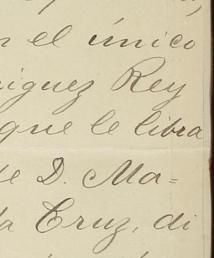 n el único
riguez Rey
que le libra
de D. Ma=
la Cruz, di